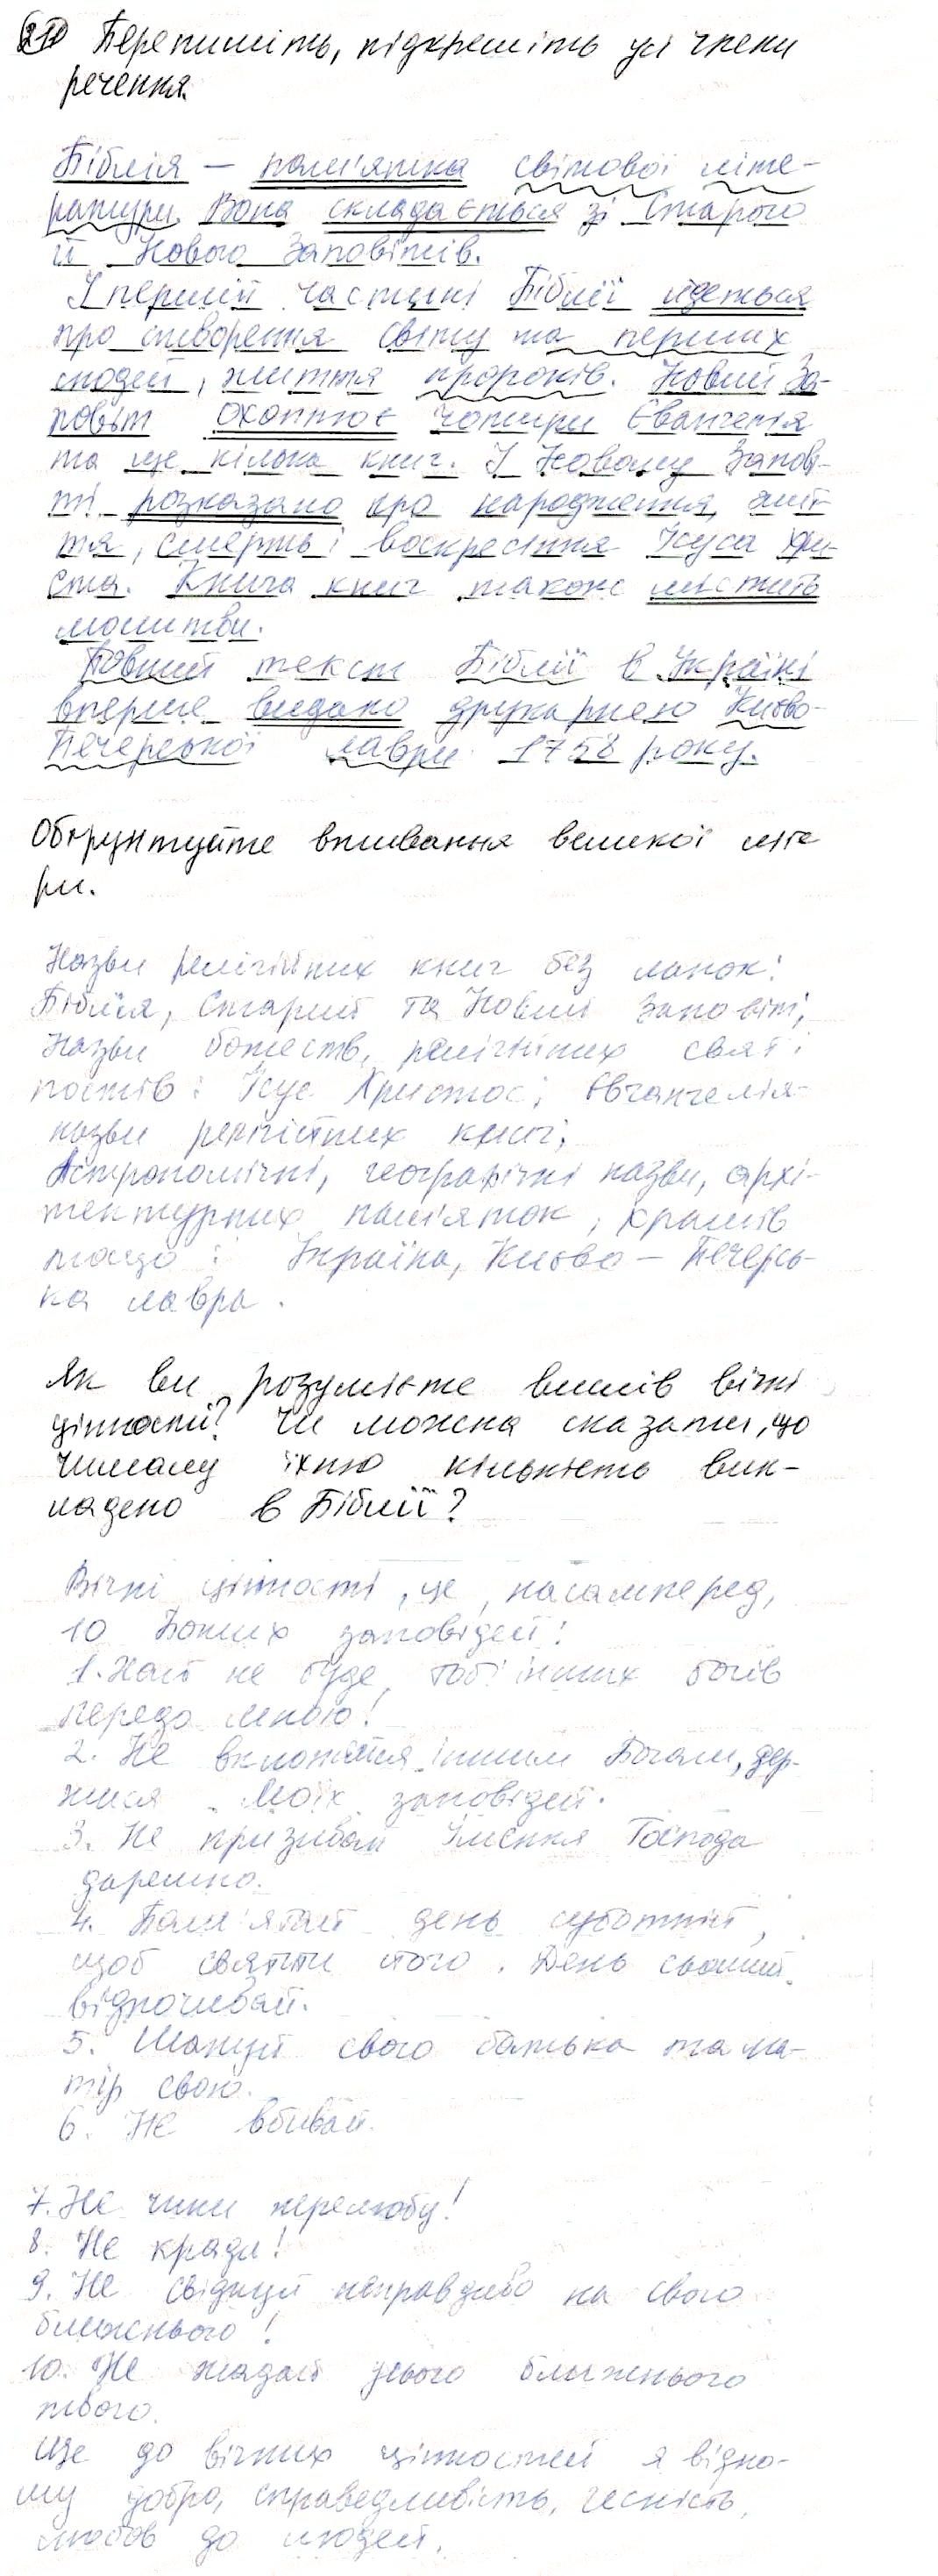 Перепишіть, підкресліть усі члени
речення.
Біблія — пам'ятка світової літе-
ратури. Вона складається зі Старого
й Нового Заповітів.
У першій частині Біблії йдеться
про створення світу та перших
людей, життя пророків. Новий За-
повіт охоплює чотири Євангелія
та ще кілька книг. У Новому Запові-
ті розказано про народження, жит-
тя, смерть і воскресіння Ісуса Хри-
ста. Книга книг також містить
молитви.
Повний текст Біблії в Україні
вперше видано друкарнею Києво-
Печерської лаври 1758 року.
Обґрунтуйте вживання великої літе
ри.
Назви релігійних книг без лапок:
Біблія, Старий та Новий Заповіт;
Назви божеств, релігійних свят і
постів: Ісус Христос; Євангелія-
назви релігійних книг;
Астрономічні, географічні назви, архі-
тектурних пам'яток, храмів
тощо: Україна, Києво-Печерсь-
ка лавра.
Як ви розумієте вислів вічні
цінності? Чи можна сказати, що
чималу їхню кількість вик-
ладено в Біблії?
Вічні цінності, це, насамперед,
10 Божих заповідей:
1. Хай не буде тобі інших богів
передо мною!
2. Не вклоняйся іншим Богам, дер-
жися Моїх заповідей.
3. Не призивай Імення Господа
даремно.
4. Пам'ятай день суботній,
щоб святити його. День сьомий
відпочивай.
5. Шануй свого батька та ма-
тір свою.
6. Не вбивай.
7. Не чини перелюбу!
8. Не кради!
9. Не свідкуй неправдиво на свого
ближнього!
10. Не жадай усього ближнього
твого.
Ще до вічних цінностей я відно-
шу добро, справедливість, чесність,
любов до людей.